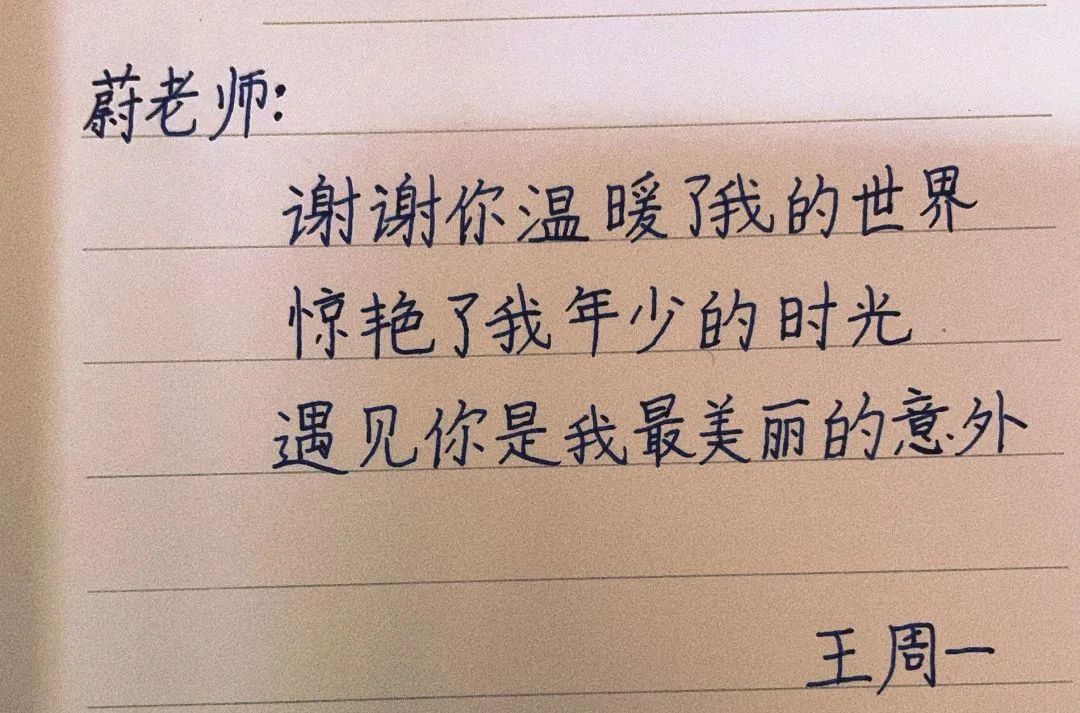 蔚老师:
谢谢你温暖了我的世界
惊艳了我年少的时光
遇见你是我最美丽的意外
王周一